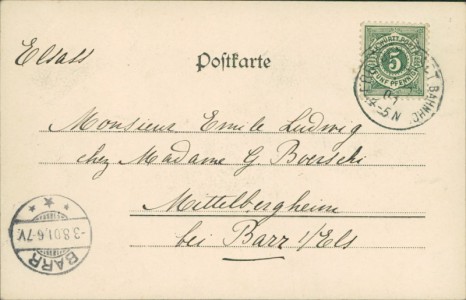 Elsass
Postkarte
K. WÜRTT. POST
5
FÜNF PFENNIG
BAHNHOF
01
4-5 N
Monsieur Emile Ludwig
chez Madame G Boerschi
Mittelbergheim
bei Barr i/Els
-3.8.01.6-7V.
BARR